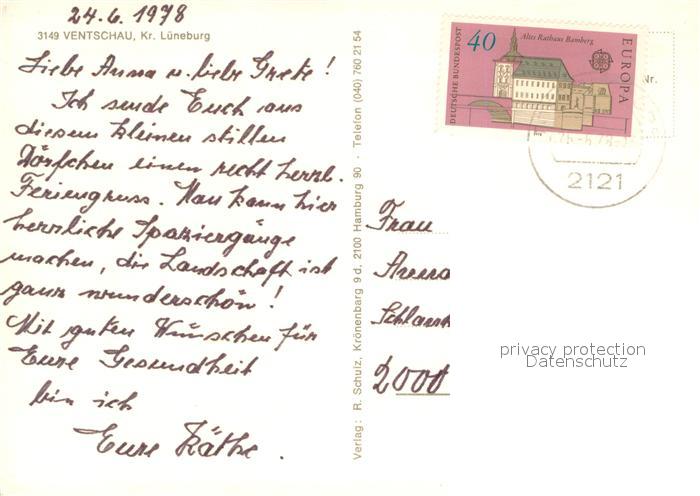 24.6.1978
3149 VENTSCHAU, Kr. Lüneburg
Liebe Anna u. liebe Grete!
Ich sende Euch aus
diesem kleinen stillen
Dörfchen einen recht herzl.
Feriengruss. Man kann hier
herrliche Spaziergänge
machen, die Landschaft ist
ganz wunderschön!
Mit guten Wünschen für
Eure Gesundheit
bin ich
Eure Käthe.
Verlag: R. Schulz, Krönenbarg 9 d, 2100 Hamburg 90 · Telefon (040) 760 21 54
DEUTSCHE BUNDESPOST
40
Altes Rathaus Bamberg
EUROPA
CEPT
Nr.
2121
Frau
Anna
2000
privacy protection
Datenschutz